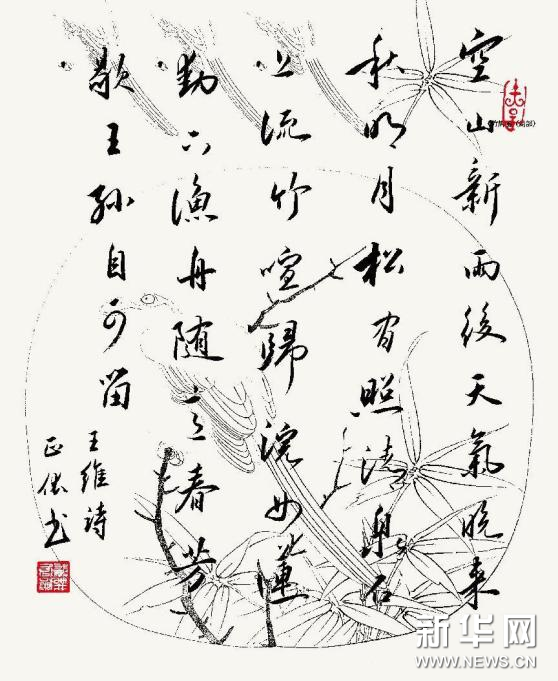 空山新雨後天氣晚来
秋明月松间照清泉石
上流竹喧歸浣女蓮
動下漁舟随意春芳
歇王孫自可留
王維詩
正书
新华网
WWW.NEWS.CN